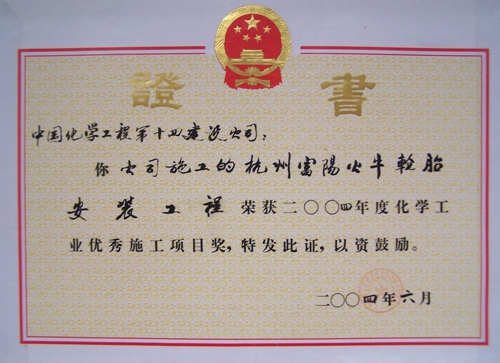 證書
中国化学工程第十四建设公司：
你公司施工的杭州富陽火牛輪胎
安装工程荣获二〇〇四年度化学工
业优秀施工项目奖，特发此证，以资鼓励。
二〇〇四年六月